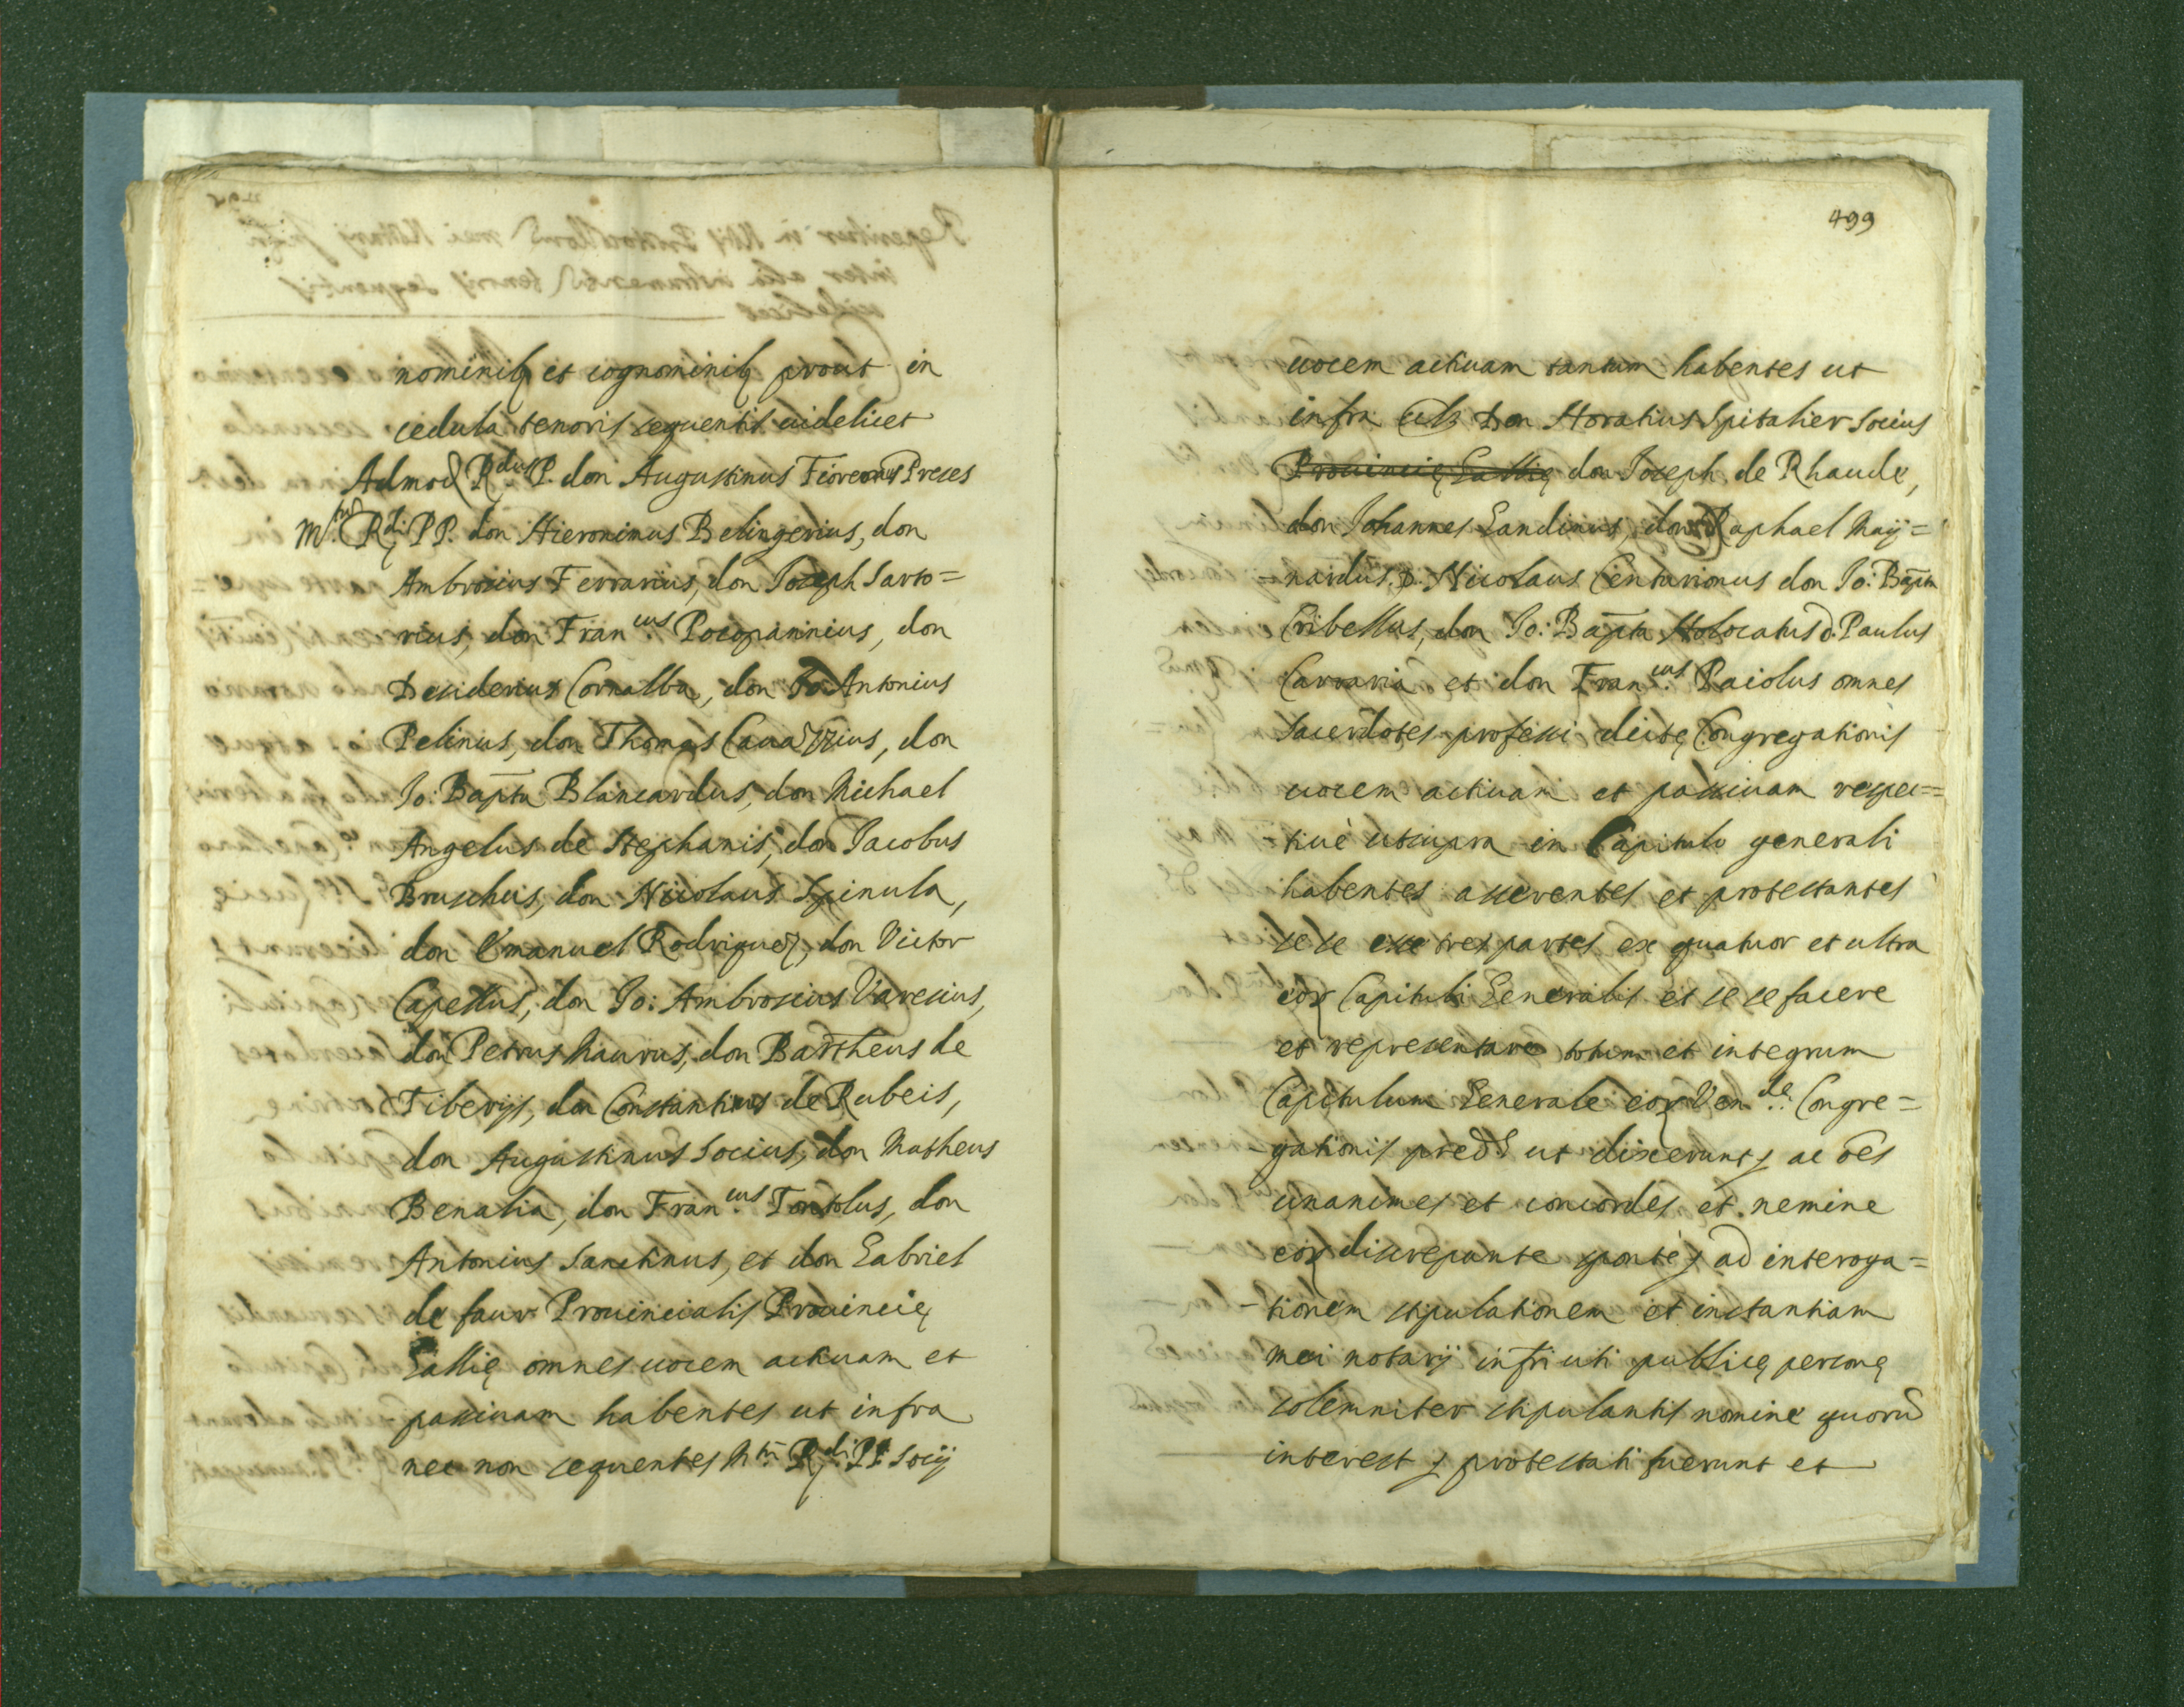 nominibꝫ et cognominibꝫ prout in
cedula tenoris sequentis uidelicet
Admod R.dus P. don Augustinus Preses
M.tri R.di PP. don Hieronimus Belingerius, don
Ambrosius Ferrarius, don Joseph Sarto=
rius, don Fran.cus Pocopannius, don
Desiderius Cornalba, don Jo: Antonius
Pelinus, don Thomas don
Jo: Bapta Blancardus, don Michael
Angelus de Stephanis, don Jacobus
Bruschus, don Nicolaus Spinula,
don Emanuel Rodriguez, don Victor
Capellus, don Jo: Ambrosius Varesius,
don Petrus Maurus, don Bartheus de
Tiberijs, don Constantinus de Rubeis,
don Augustinus Socius, don Matheus
Benalia, don Fran.cus Tontolus, don
Antonius Sanctinus, et don Gabriel
de faur Prouincialis Prouincię
Gallię omnes uocem actiuam et
passiuam habentes ut infra
nec non sequentes M.ti R.di PP. Socij
499
uocem actiuam tantum habentes ut
infra Don Horatius Spitalier Socius
Prouincię Gallię don Joseph de Rhaude,
don Johannes Landinus, don Raphael May=
=nardus, D. Nicolaus Centurionus don Jo: Bapta
Cribellus, don Jo: Bapta Holocatus d. Paulus
Carraria et don Fran.cus Paiolus omnes
Sacerdotes professi dictę Congregationis
uocem actiuam et passiuam respec=
tiuè utsupra in Capitulo generali
habentes asserentes et protestantes
se se esse tres partes ex quatuor et ultra
eoꝝ Capituli Generalis et se se facere
et representare totum et integrum
Capitulum Generale eoꝝ Ven.de: Congre=
=gationis pred ut dixerunt, ac oēs
unanimes et concordes et nemine
eoꝝ discrepante sponte, ad interoga=
=tionem stipulationem et instantiam
mei notarij infrī uti publicę personę
solemniter stipulantis nomine quorū
interest, protestati fuerunt et